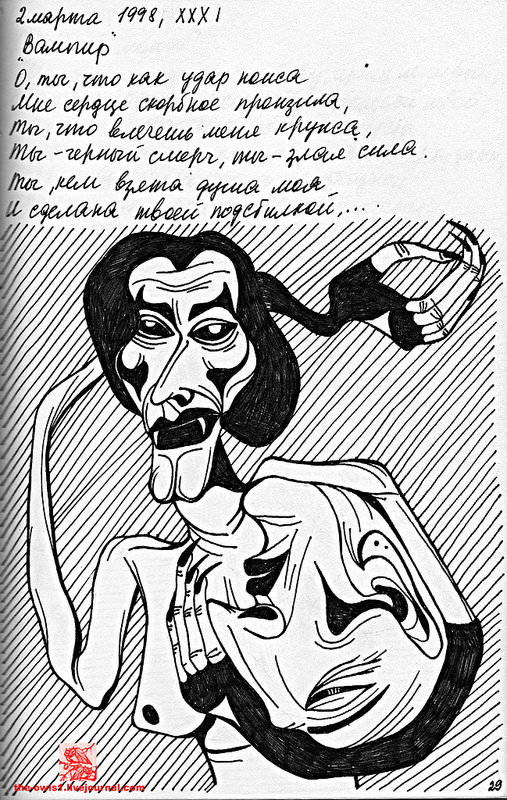 2 марта 1998, XXXI
"Вампир"
О, ты, что как удар ножа
Мне сердце скорбное пронзила,
Ты, что влечешь меня кружа,
Ты - черный смерч, ты - злая сила.
Ты, кем взята душа моя
И сделана твоей подстилкой,...
29
the-owls1.livejournal.com